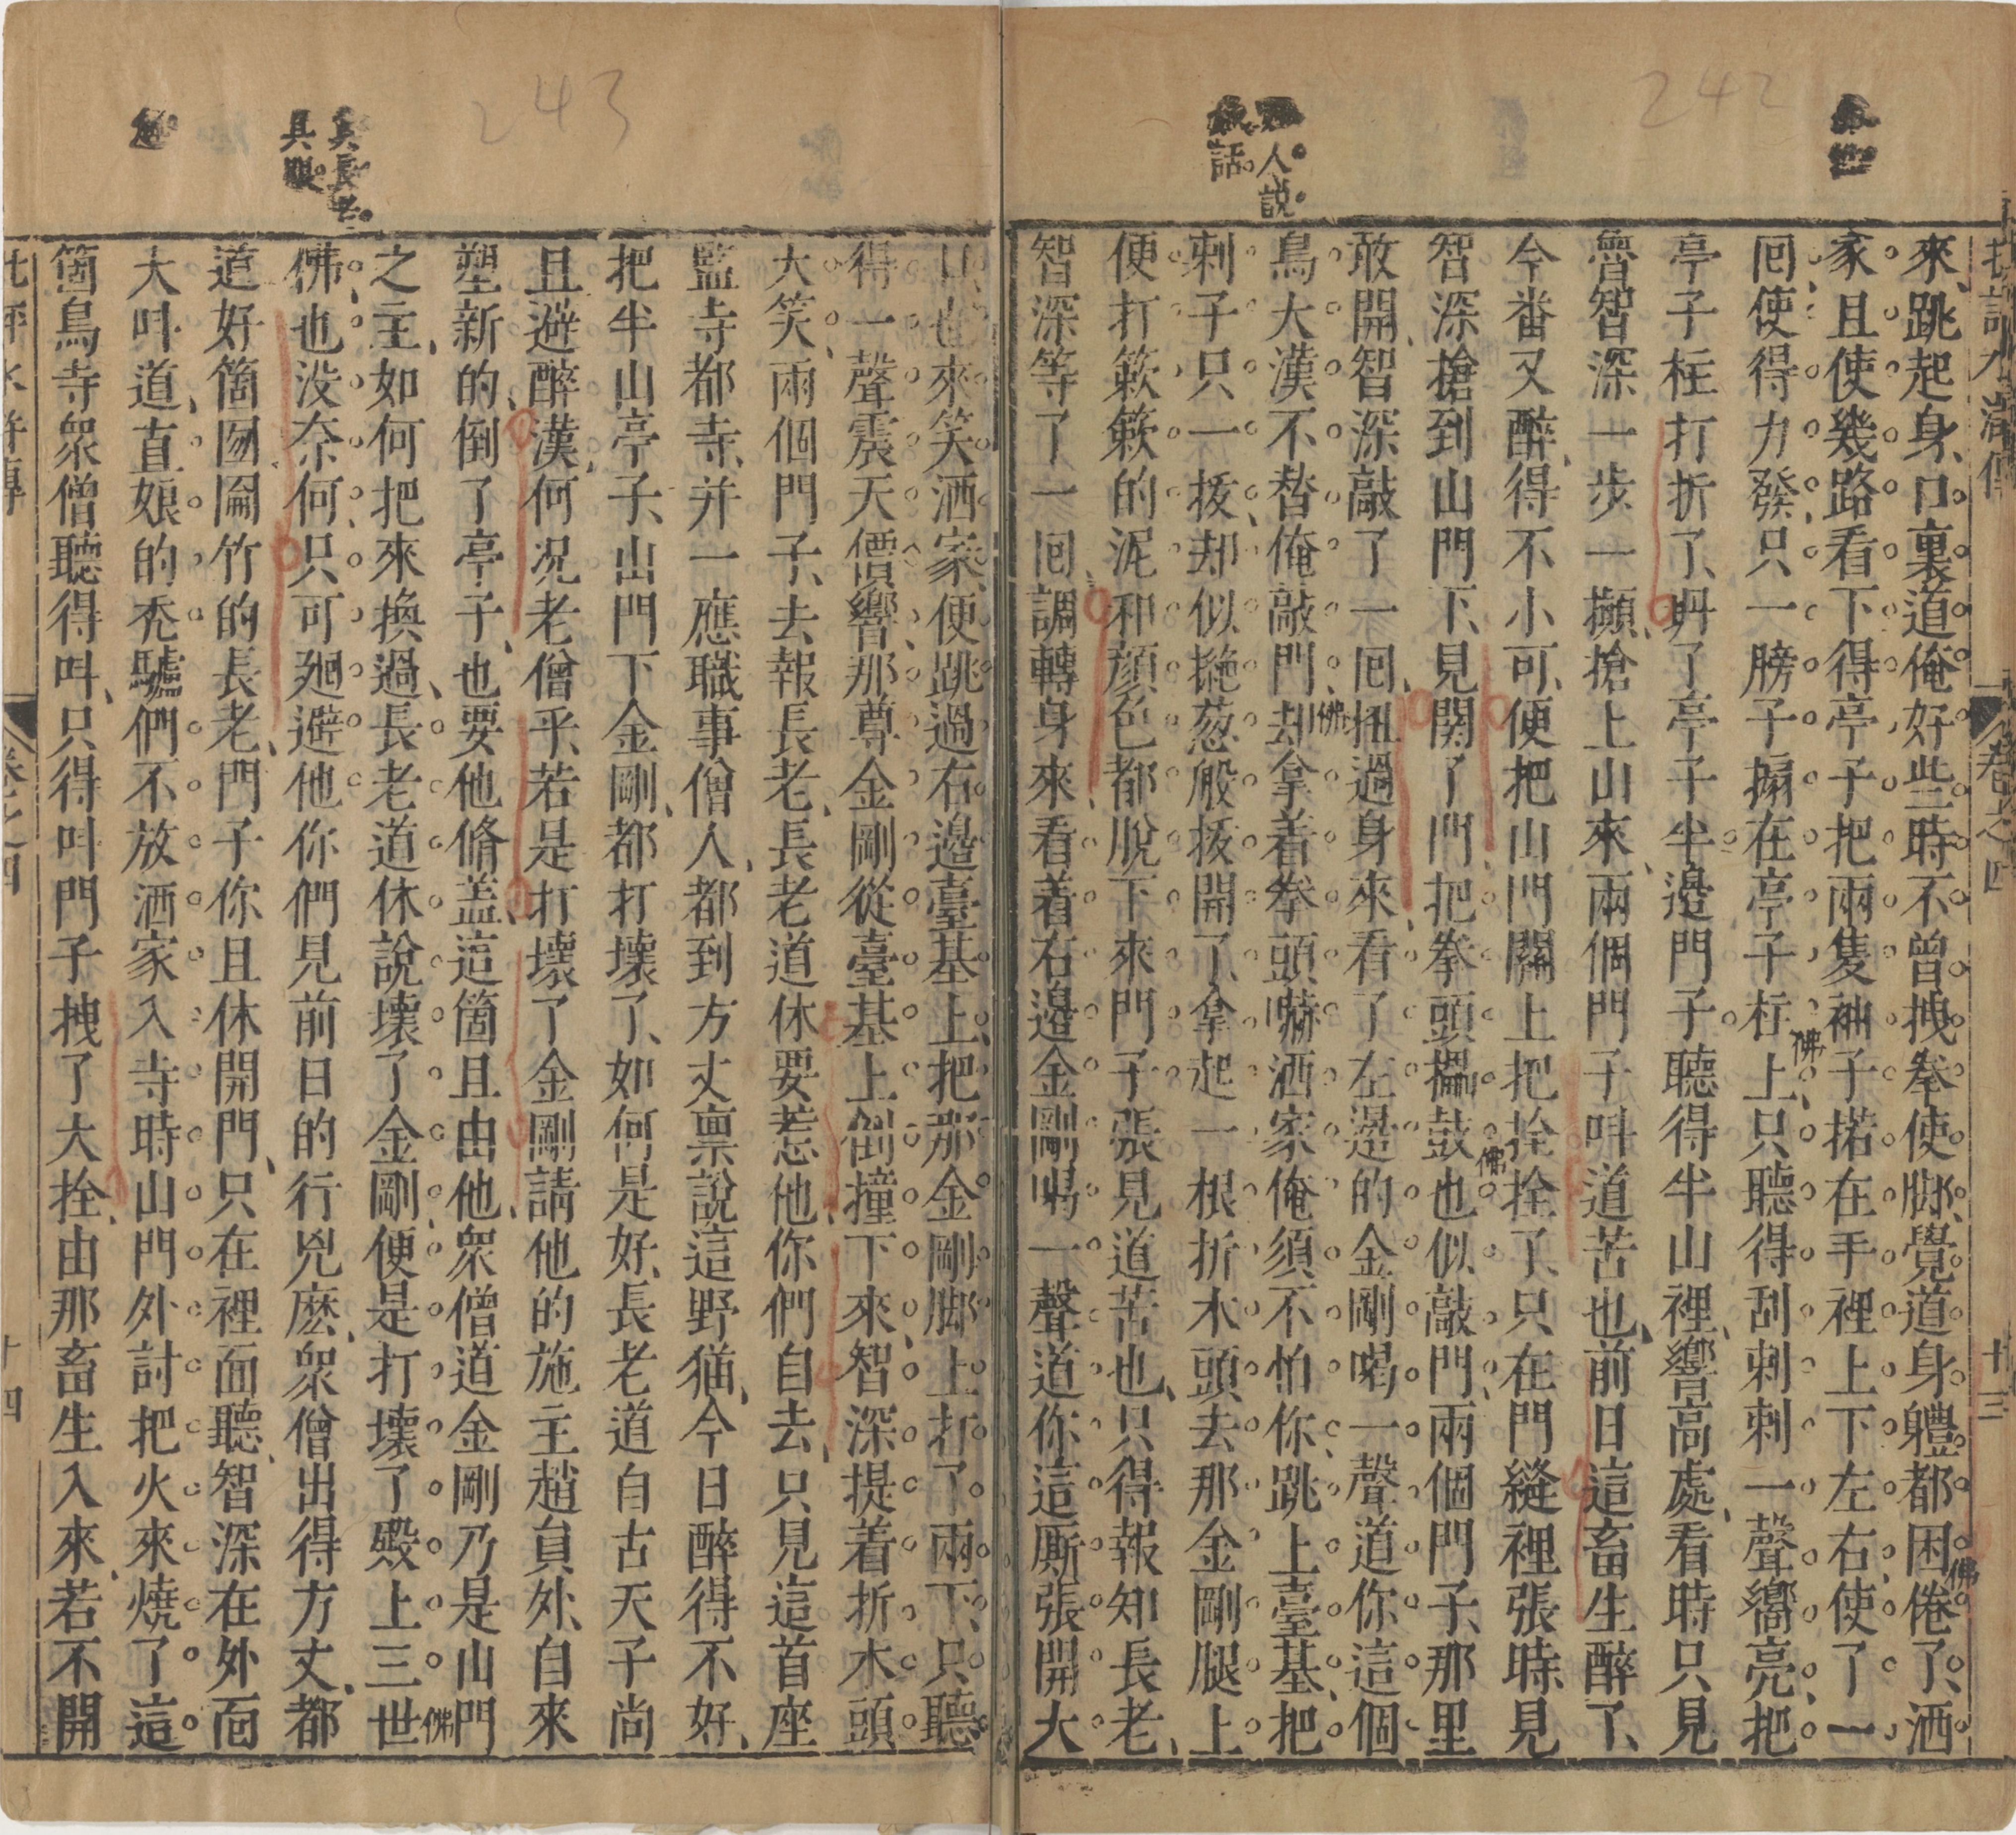 來跳起身口裏道俺好些時不曾拽拳使脚覺道身軆都困倦了洒
家且使幾路看下得亭子把兩隻袖子掿在手裡上下左右使了一
囘使得力發只一膀子搧在亭子柱上只聽得刮剌剌一聲響亮把
亭子柱打折了坍了亭子半邊門子聽得半山裡響高處看時只見
魯智深一步一攧搶上山來兩個門子呌道苦也前日這畜生醉了
今番又醉得不小可便把山門關上把拴拴了只在門縫裡張時見
智深搶到山門下見関了門把拳頭擂鼓也似敲門兩個門子那里
敢開智深敲了一囘扭過身來看了左邊的金剛喝一聲道你這個
鳥大漢不替俺敲門却拿着拳頭嚇洒家俺須不怕你跳上臺基把
剌子只一扳却似撧葱般扳開了拿起一根折木頭去那金剛腿上
便打簌簌的泥和顔色都脫下來門子張見道苦也只得報知長老
智深等了一囘調轉身來看着右邊金剛喝一聲道你這厮張開大
口也來笑洒家便跳過右邊臺基上把那金剛脚上打了兩下只聽
得一聲震天價響那尊金剛從臺基上倒撞下來智深提着折木頭
大笑兩個門子去報長老長老道休要惹他你們自去只見這首座
監寺都寺并一應職事僧人都到方丈禀說這野猫今日醉得不好
把半山亭子出門下金剛都打壞了如何是好長老道自古天子尚
且避醉漢何况老僧乎若是打壞了金剛請他的施主趙員外自來
塑新的倒了亭子也要他脩盖這箇且由他衆僧道金剛乃是山門
之主如何把來換過長老道休說壞了金剛便是打壞了殿上三世
佛也没奈何只可廻避他你們見前日的行兇麽衆僧出得方丈都
道好箇囫圇竹的長老門子你且休開門只在裡面聽智深在外面
大呌道直娘的秃驢們不放洒家入寺時山門外討把火來燒了這
箇鳥寺衆僧聽得呌只得呌門子拽了大拴由那畜生入來若不開
卷之四
十三
十四
人說
話
真長老
具眼
佛
佛
佛
佛
佛
242
243